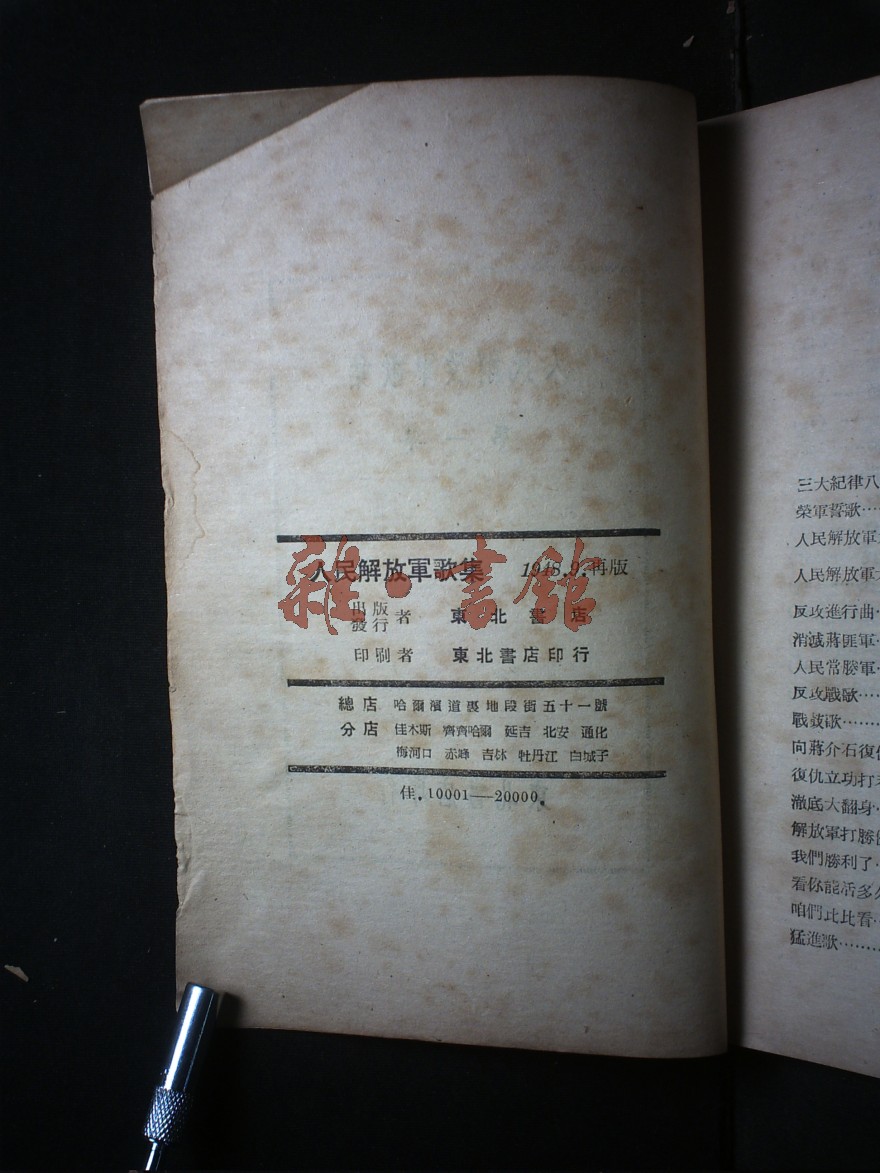 人民解放軍歌集 1948.9.再版
出版
發行 者 東北書店
印刷者 東北書店印行
總店 哈爾濱道裏地段街五十一號
分店 佳木斯 齊齊哈爾 延吉 北安 通化
梅河口 赤峰 吉林 牡丹江 白城子
佳.10001—20000.
雜·書館
三大紀律八
榮軍誓歌……
人民解放軍
人民解放軍
反攻進行曲
消滅蔣匪軍
人民常勝軍
反攻戰歌……
戰鼓歌……
向蔣介石復仇
復仇立功打
澈底大翻身
解放軍打勝
我們勝利了
看你能活多久
咱們比比看
猛進歌……